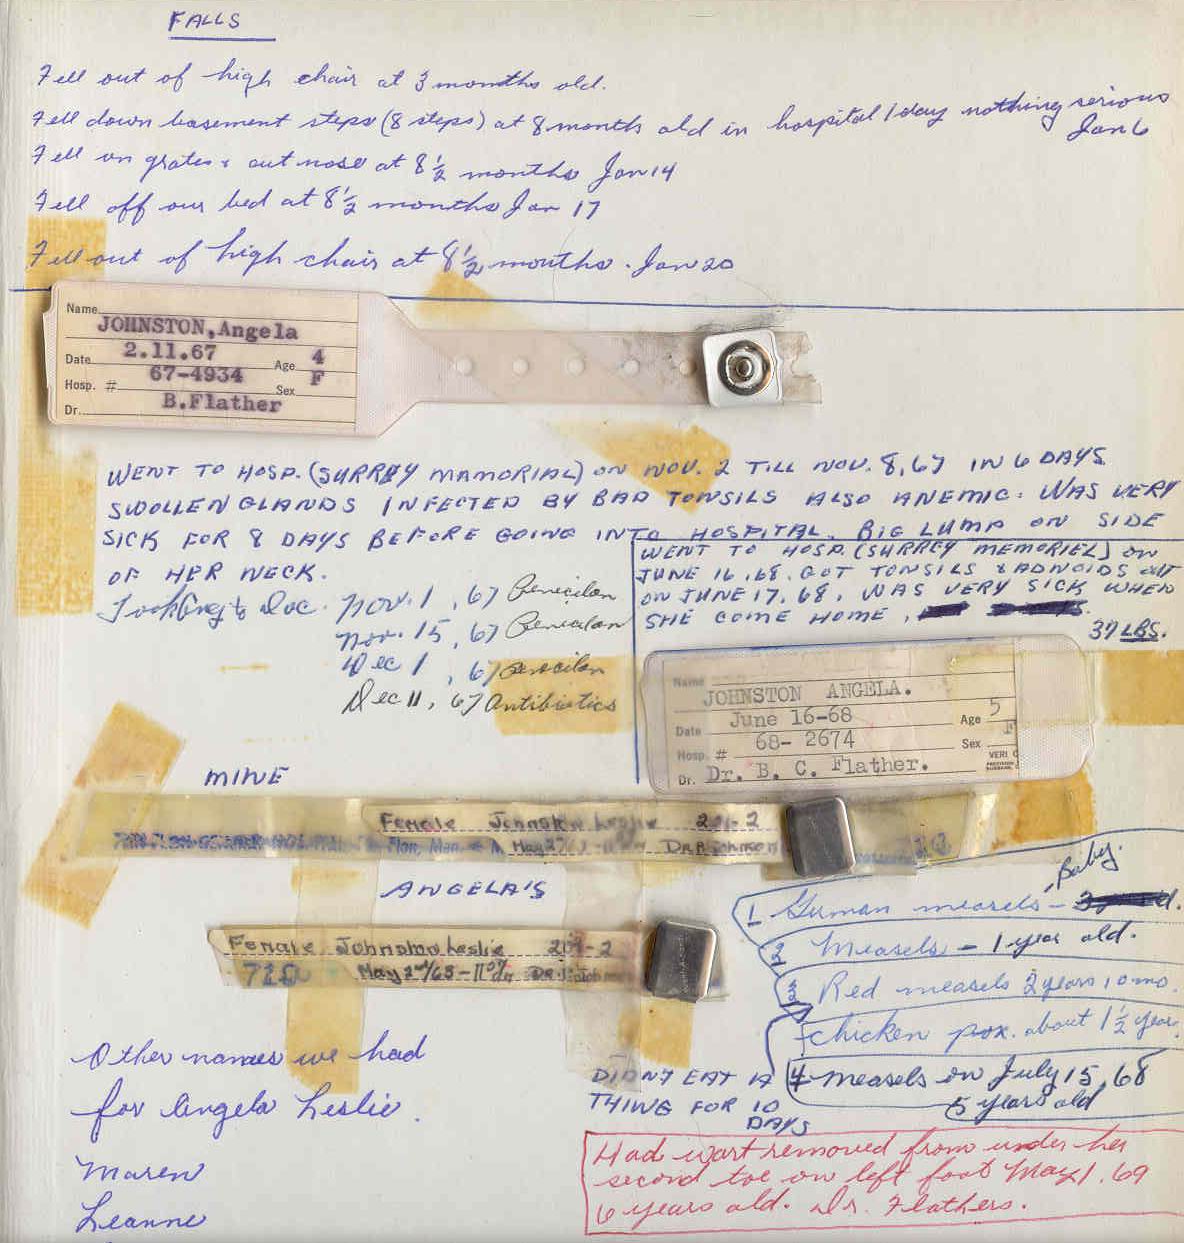 FALLS
Fell out of high chair at 3 months old.
Fell down basement steps (8 steps) at 8 months old in hospital 1 day nothing serious
Jan 6
Fell on grates & cut nose at 8½ months Jan 14
Fell off our bed at 8½ months Jan 17
Fell out of high chair at 8½ months. Jan 20
Name
JOHNSTON, Angela
Date 2.11.67 Age 4
Hosp. # 67-4934 Sex F
Dr. B.Flather
WENT TO HOSP. (SURREY MAMORIAL) ON NOV. 2 TILL NOV. 8, 67 IN 6 DAYS
SWOLLEN GLANDS INFECTED BY BAD TONSILS ALSO ANEMIC. WAS VERY
SICK FOR 8 DAYS BEFORE GOING INTO HOSPITAL. BIG LUMP ON SIDE
OF HER NECK.
WENT TO HOSP. (SURREY MEMORIEL) ON
JUNE 16, 68. GOT TONSILS & ADNOIDS OUT
ON JUNE 17, 68, WAS VERY SICK WHEN
SHE COME HOME,
37 LBS.
Doc. Nov. 1, 67 Penicilan
Nov. 15, 67 Penicilan
Dec 1, 67 Penicilan
Dec 11, 67 Antibiotics
Name JOHNSTON ANGELA.
Date June 16-68 Age 5
Hosp. # 68- 2674 Sex F
Dr. Dr. B. C. Flather.
MINE
Female Johnston Leslie 201-2
ANGELA'S
Female Johnston Leslie 201-2
May 2nd/63
Baby.
1 German measels -
2 Measels - 1 year old.
3 Red measels 2 years 10 mo.
chicken pox. about 1½ year.
4 measels on July 15, 68
5 years old
DIDN'T EAT A
THING FOR 10
DAYS
Other names we had
for Angela Leslie.
Maren
Leanne
Had wart removed from under her
second toe on left foot May 1, 69
6 years old. Dr. Flathers.